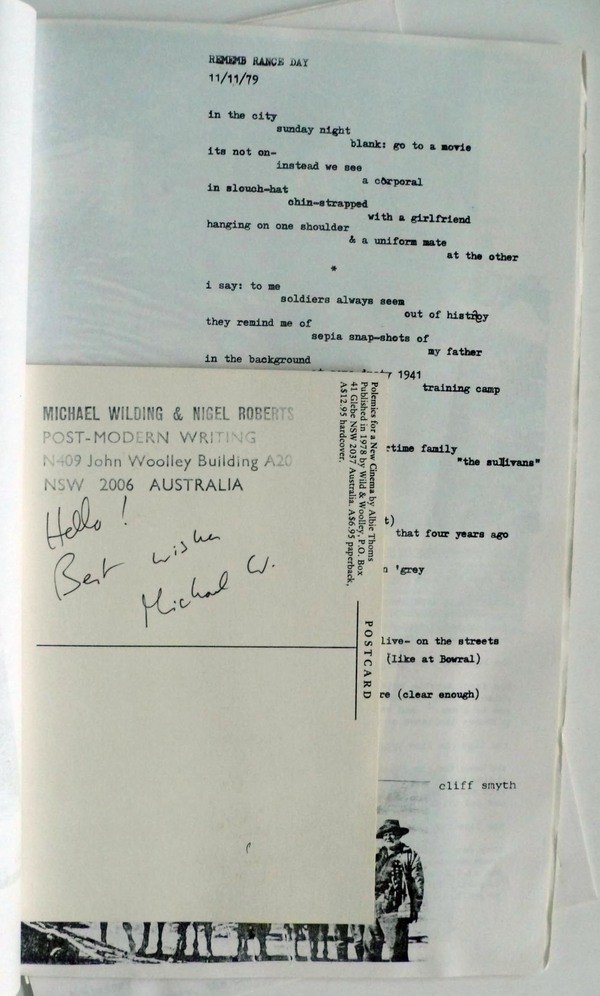 REMEMB RANCE DAY
11/11/79
in the city
sunday night
blank: go to a movie
its not on-
instead we see
a corporal
in slouch-hat
chin-strapped
with a girlfriend
hanging on one shoulder
& a uniform mate
at the other
*
i say: to me
soldiers always seem
out of history
they remind me of
sepia snap-shots of
my father
in the background
1941
training camp
time family
"the sullivans"
t)
that four years ago
'grey
live- on the streets
(like at Bowral)
re (clear enough)
cliff smyth
MICHAEL WILDING & NIGEL ROBERTS
POST-MODERN WRITING
N-409 John Woolley Building A20
NSW 2006 AUSTRALIA
Hello!
Best wishes
Michael W.
Polemics for a New Cinema by Albie Thoms
Published in 1978 by Wild & Woolley, P.O. Box
41 Glebe NSW 2037 Australia. A$6.95 paperback,
A$12.95 hardcover.
POSTCARD